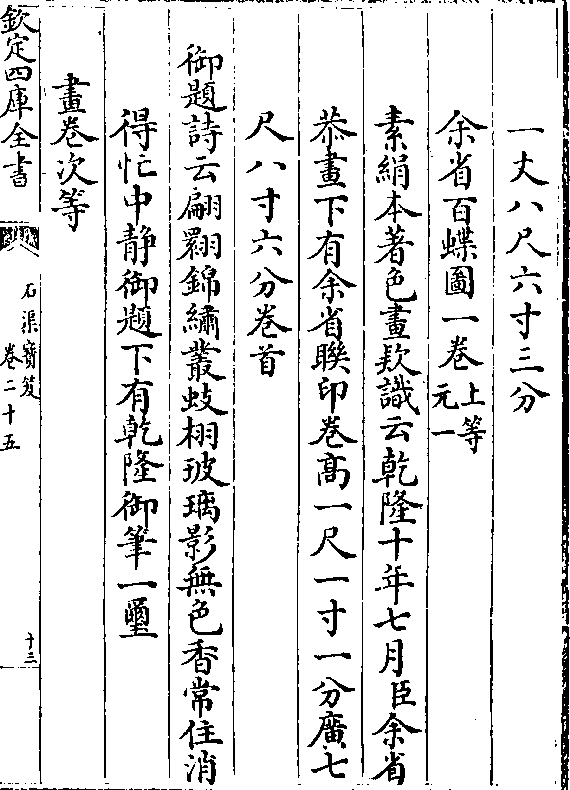 一丈八尺六寸三分
余省百蝶圖一卷上等元一
素絹本著色畫欵識云乾隆十年七月臣余省
恭畫下有余省聯印卷髙一尺一寸一分廣七
尺八寸六分卷首
御題詩云翩翾錦繡叢蛟栩玻璃影無色香常住消
得忙中靜御題下有乾隆御筆一璽
畫卷次等
欽定四庫全書
石渠寳笈
卷二十五
十三